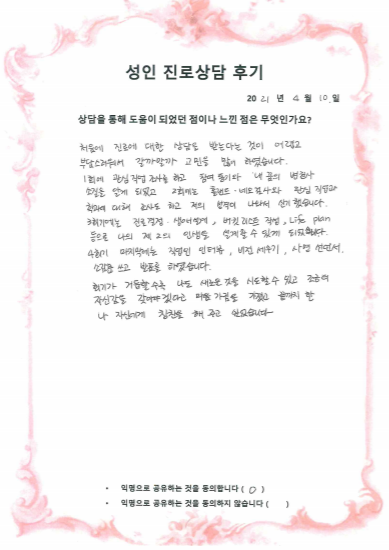 성인 진로상담 후기
20 21 년 4 월 10 일
상담을 통해 도움이 되었던 점이나 느낀 점은 무엇인가요?
처음에 진로에 대한 상담을 받는다는 것이 어렵고
부담스러워서 갈까말까 고민을 많이 하였습니다.
1회에 관심 직업 조사를 하고 참여 동기와 내 꿈의 변천사
소감을 알게 되었고 2회에는 홀랜드·네오검사와 관심 직업과
학과에 대해 조사도 하고 저의 성격이 나와서 신기했습니다.
3회기에는 진로결정·생애설계, 버킷리스트 작성, Life plan
등으로 나의 제2의 인생을 설계할 수 있게 되었습니다.
4회기 마지막에는 직업인 인터뷰, 비전 세우기, 사명 선언서,
소감문 쓰고 발표를 하였습니다.
회기가 거듭할수록 나도 새로운 것을 시도할 수 있고 조금 더
자신감을 갖어야겠다고 마음 가짐을 가졌고 끝까지 한
나 자신에게 칭찬을 해 주고 싶습니다
• 익명으로 공유하는 것을 동의합니다 ( O )
• 익명으로 공유하는 것을 동의하지 않습니다 ( )